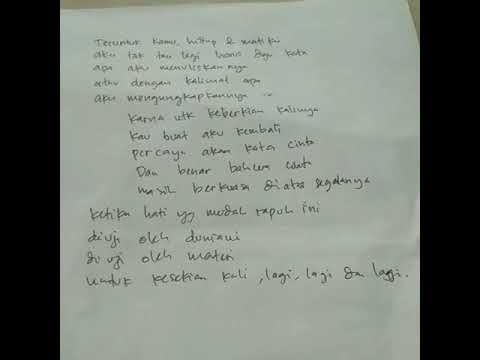 Teruntuk kamu, hidup & matiku
aku tak tau lagi harus dgn kata
apa aku menuliskannya
atau dengan kalimat apa
aku mengungkapkannya
karna utk kesekian kalinya
kau buat aku kembali
percaya akan kata cinta
Dan benar bahwa cinta
masih berkuasa diatas segalanya
ketika hati yg mudah rapuh ini
diuji oleh duniawi
di uji oleh materi
untuk kesekian kali, lagi, lagi dan lagi.